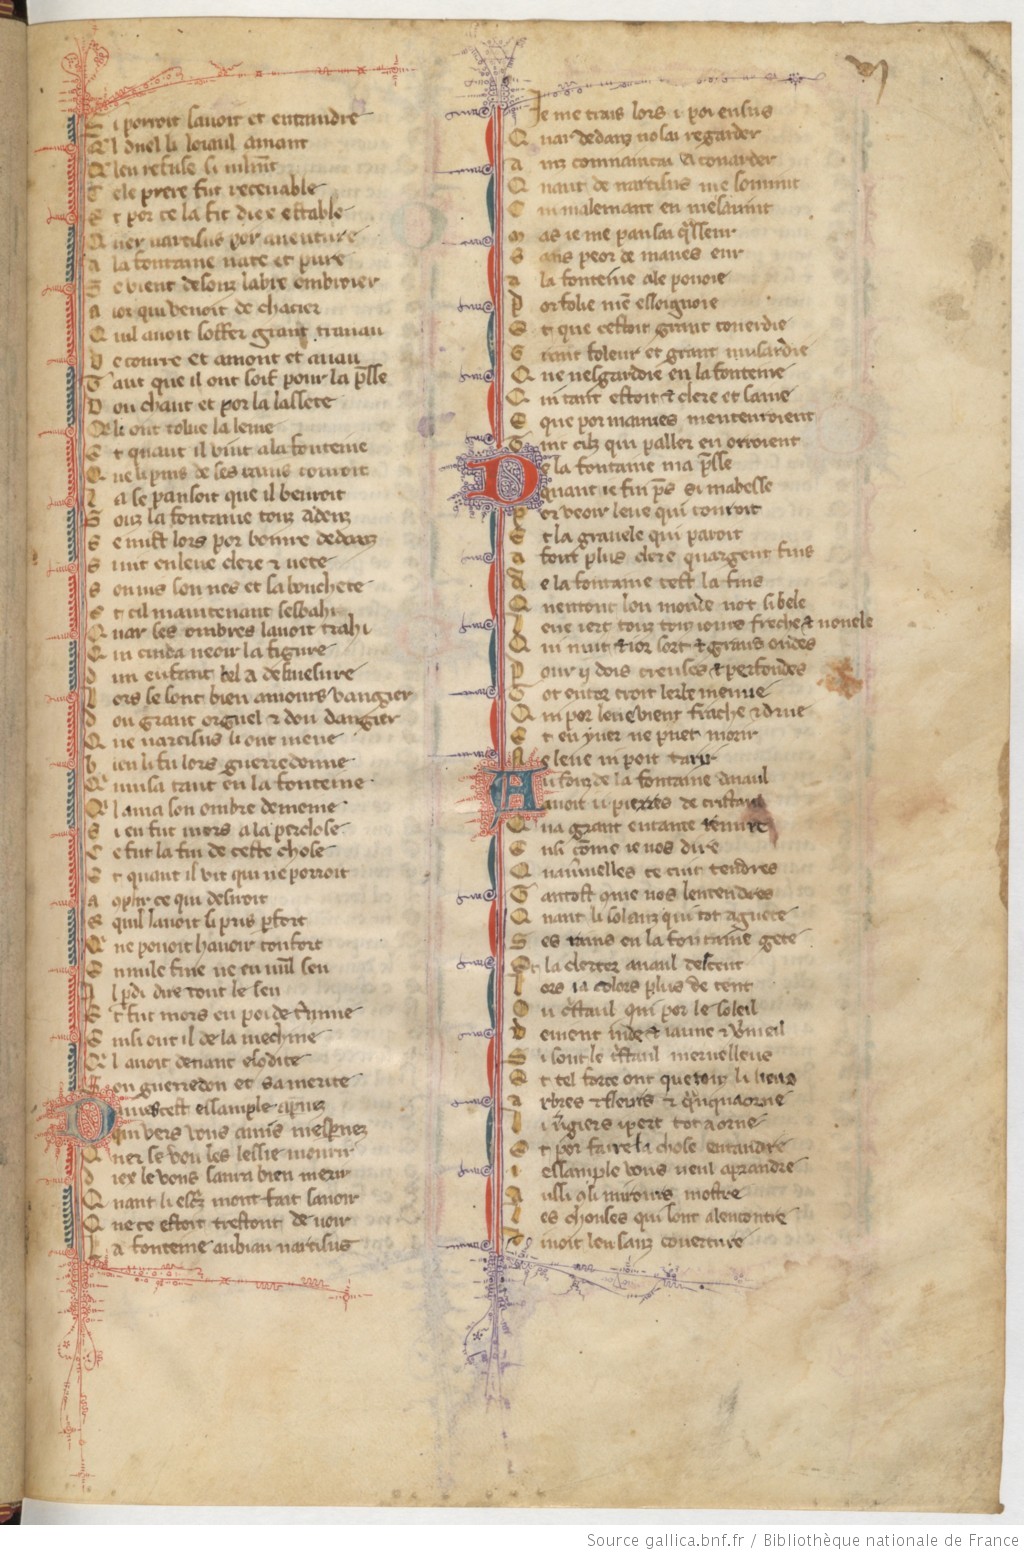 Si porroit savoir et entandre
Q'l duel li loiaul amant
Q'l en refuse si vilmt
Cele priere fut recevable
Et por ce la fit diex estable
Quer narcisus por aventure
A la fontaine nete et pure
Se vient desouz labre ombroier
A ior qui venoit de chacier
Quil avoit soffer grant travau
De courre et amont et avau
Tant que il ont soif pour la psse
Dou chaut et por la lassete
Q' li ont tolue la leine
Et quant il vint a la fonteine
Que li pins de ses rains covroit
Sa se pansoit que il bevroit
Souz la fontaine touz adenz
Se mist lors por boivre dedanz
Si vit en leve clere et nete
Son vis son nes et sa bouchete
Et cil maintenant sesbahi
Quar ses ombres lavoit trahi
Qui cuida veoir la figure
Dun enfant bel a desmesure
Lors se sont bien amours vangier
Dou grant orguel et dou dangier
Que narcisus li ont mene
Bien li fu lors guerredonne
Q' musa tant en la fonteine
Q'l ama son ombre demeine
Si en fut mors a la perclose
Ce fut la fin de ceste chose
Et quant il vit qui ne porroit
Acoplir ce qui desirroit
Et quil lavoit si pris p fort
Q' ne pouoit havoir confort
En nule fine ne en nul sen
Il pdi dire tout le sen
Et fut mors en poi de tmine
Ensi out il de la meschine
Q'l avoit devant escondite
Son guerredon et sa merite
Dames cest essample aprenez
Qui vers vous amis mesprenez
Quer se vou les lessie mourir
Diex le vous saura bien merir
Quant li escriz mont fait savoir
Que ce estoit trestout de voir
La fonteine au biau narcisus
Je me trais lors i poi ensus
Quar dedanz nosai regarder
Ainz commancai a couarder
Quant de narcisus me sovint
Cui malement en mesavint
Mas ie me pansai q'sseur
Sans peor de mauves eur
A la fonteine aler pouoie
Por folie men essoignoie
Et que cestoit grant couerdie
Et tant foleur et grant musardie
Que nesgardie en la fonteine
Qui tant estoit et clere et saine
Et que por mauves men tenroient
Tuit cilz qui paller en orroient
De la fontaine ma psse
Quant ie fui ps si mabesse
Por veoir leve qui couroit
Et la gravele qui paroit
Au font plus clere quargent fins
De la fontaine cest la fins
Quen tout lou monde not si bele
Leve iert touz touz iours freche et novele
Qui nuit et ior sort et grans ondes
Pour ij dois creuses et perfondes
Tot entor croit lerbe menue
Qui por leve vient freche et drue
Et en yver ne puet morir
Ne leve ni poit tarir
Au fonz de la fontaine avaul
Avoit ij pierres de cristaul
Qua grant entante remire
Ensi come ie vos dire
Quavmelles ce cuit tendres
Tantost que vos lentendres
Quant li solauz qui tot aguete
Ses rains en la fontaine gete
Et la clertez avaul descent
Lors ia colors plus de cent
Ou cstaul qui por le soleil
Devient inde et iaune et vmeil
Si sont le cstaul merveilleus
Et tel force ont que touz li lieus
Arbres et fleurs et qnquaorne
Li vgiers ipert tot a orne
Et por faire la chose entandre
I essample vous veul aprandre
Aussi q li miroirs mostre
Les chouses qui sont alencontre
Et i voit len sanz coverture